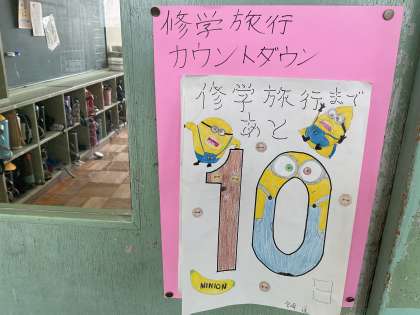 修学旅行
カウントダウン
修学旅行まで
あと
10
MINION